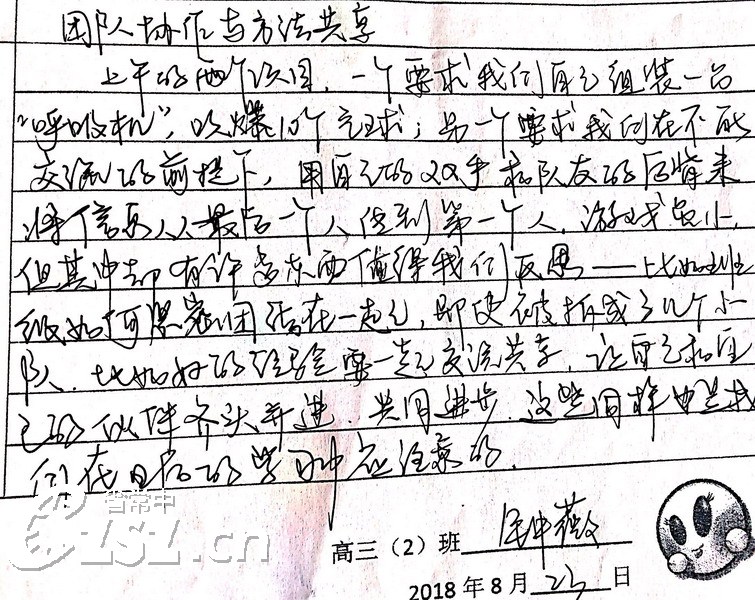 团队协作与方法共享
上午的两个项目,一个要求我们自己组装一台
“呼吸机”,吹爆10个气球;另一个要求我们在不能
交流的前提下,用自己的双手和队友的后背来
将信息从最后一个人传到第一个人。游戏虽小,
但其中却有许多东西值得我们反思——比如班
级如何紧密团结在一起,即使被拆成了几个小
队。比如好的经验要一起交流共享,让自己和自
己的伙伴齐头并进,共同进步。这些同样也是我
们在日后的学习中应注意的。
省常中
CZSLZ.cn
高三(2)班 仲薇
2018年8月23日